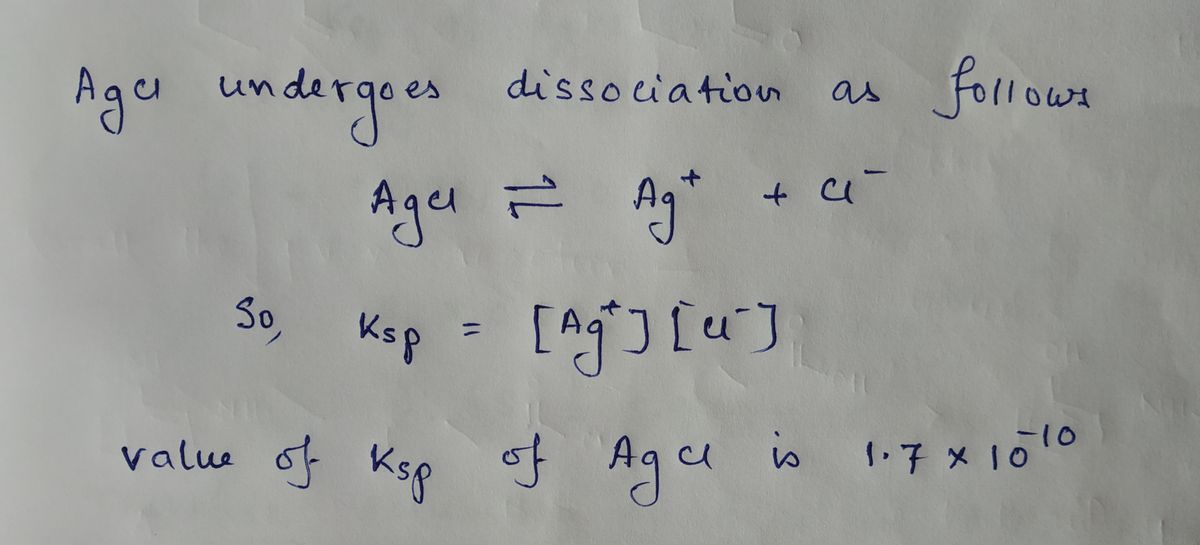 AgCl undergoes dissociation as follows
AgCl ⇌ Ag⁺ + Cl⁻
So, Ksp = [Ag⁺] [Cl⁻]
value of Ksp of AgCl is 1.7 × 10⁻¹⁰